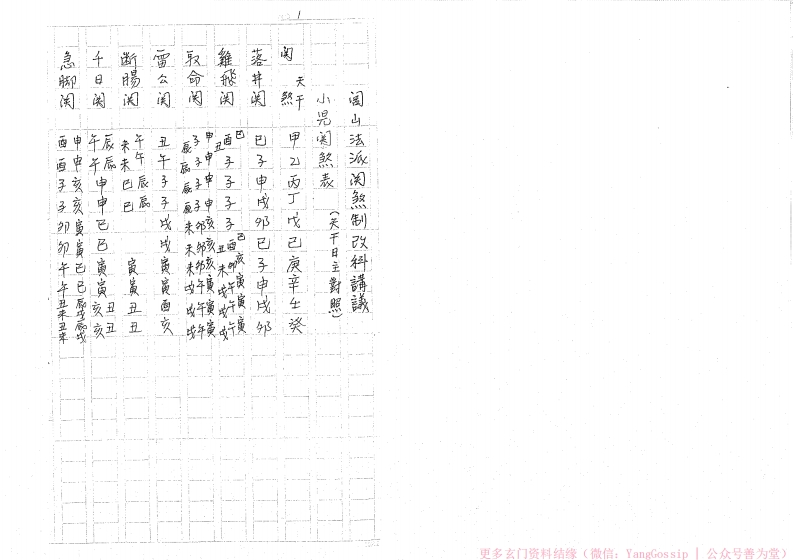 1
閭山法派関煞制改科講議
小児関煞表 (天干日主對照)
関煞 天干 甲乙丙丁戊己庚辛壬癸
落井関 巳子申戌卯巳子申戌卯
雞飛関 巳酉丑 子 子 子 子 巳酉丑 亥卯未 寅午戌 寅午戌 寅午戌
取命関 申子辰 申子辰 申子辰 申子辰 亥卯未 亥卯未 亥卯未 寅午戌 寅午戌 寅午戌
雷公関 丑午子子戌戌寅寅酉亥
断腸関 午未 午未 辰巳 辰巳 寅寅丑丑
千日関 辰午 辰午 申申巳巳寅寅 丑亥 丑亥
急脚関 申酉 申酉 亥子 亥子 寅卯 寅卯 巳午 巳午 辰戌丑未 辰戌丑未
更多玄门资料结缘（微信：YangGossip | 公众号善为堂）